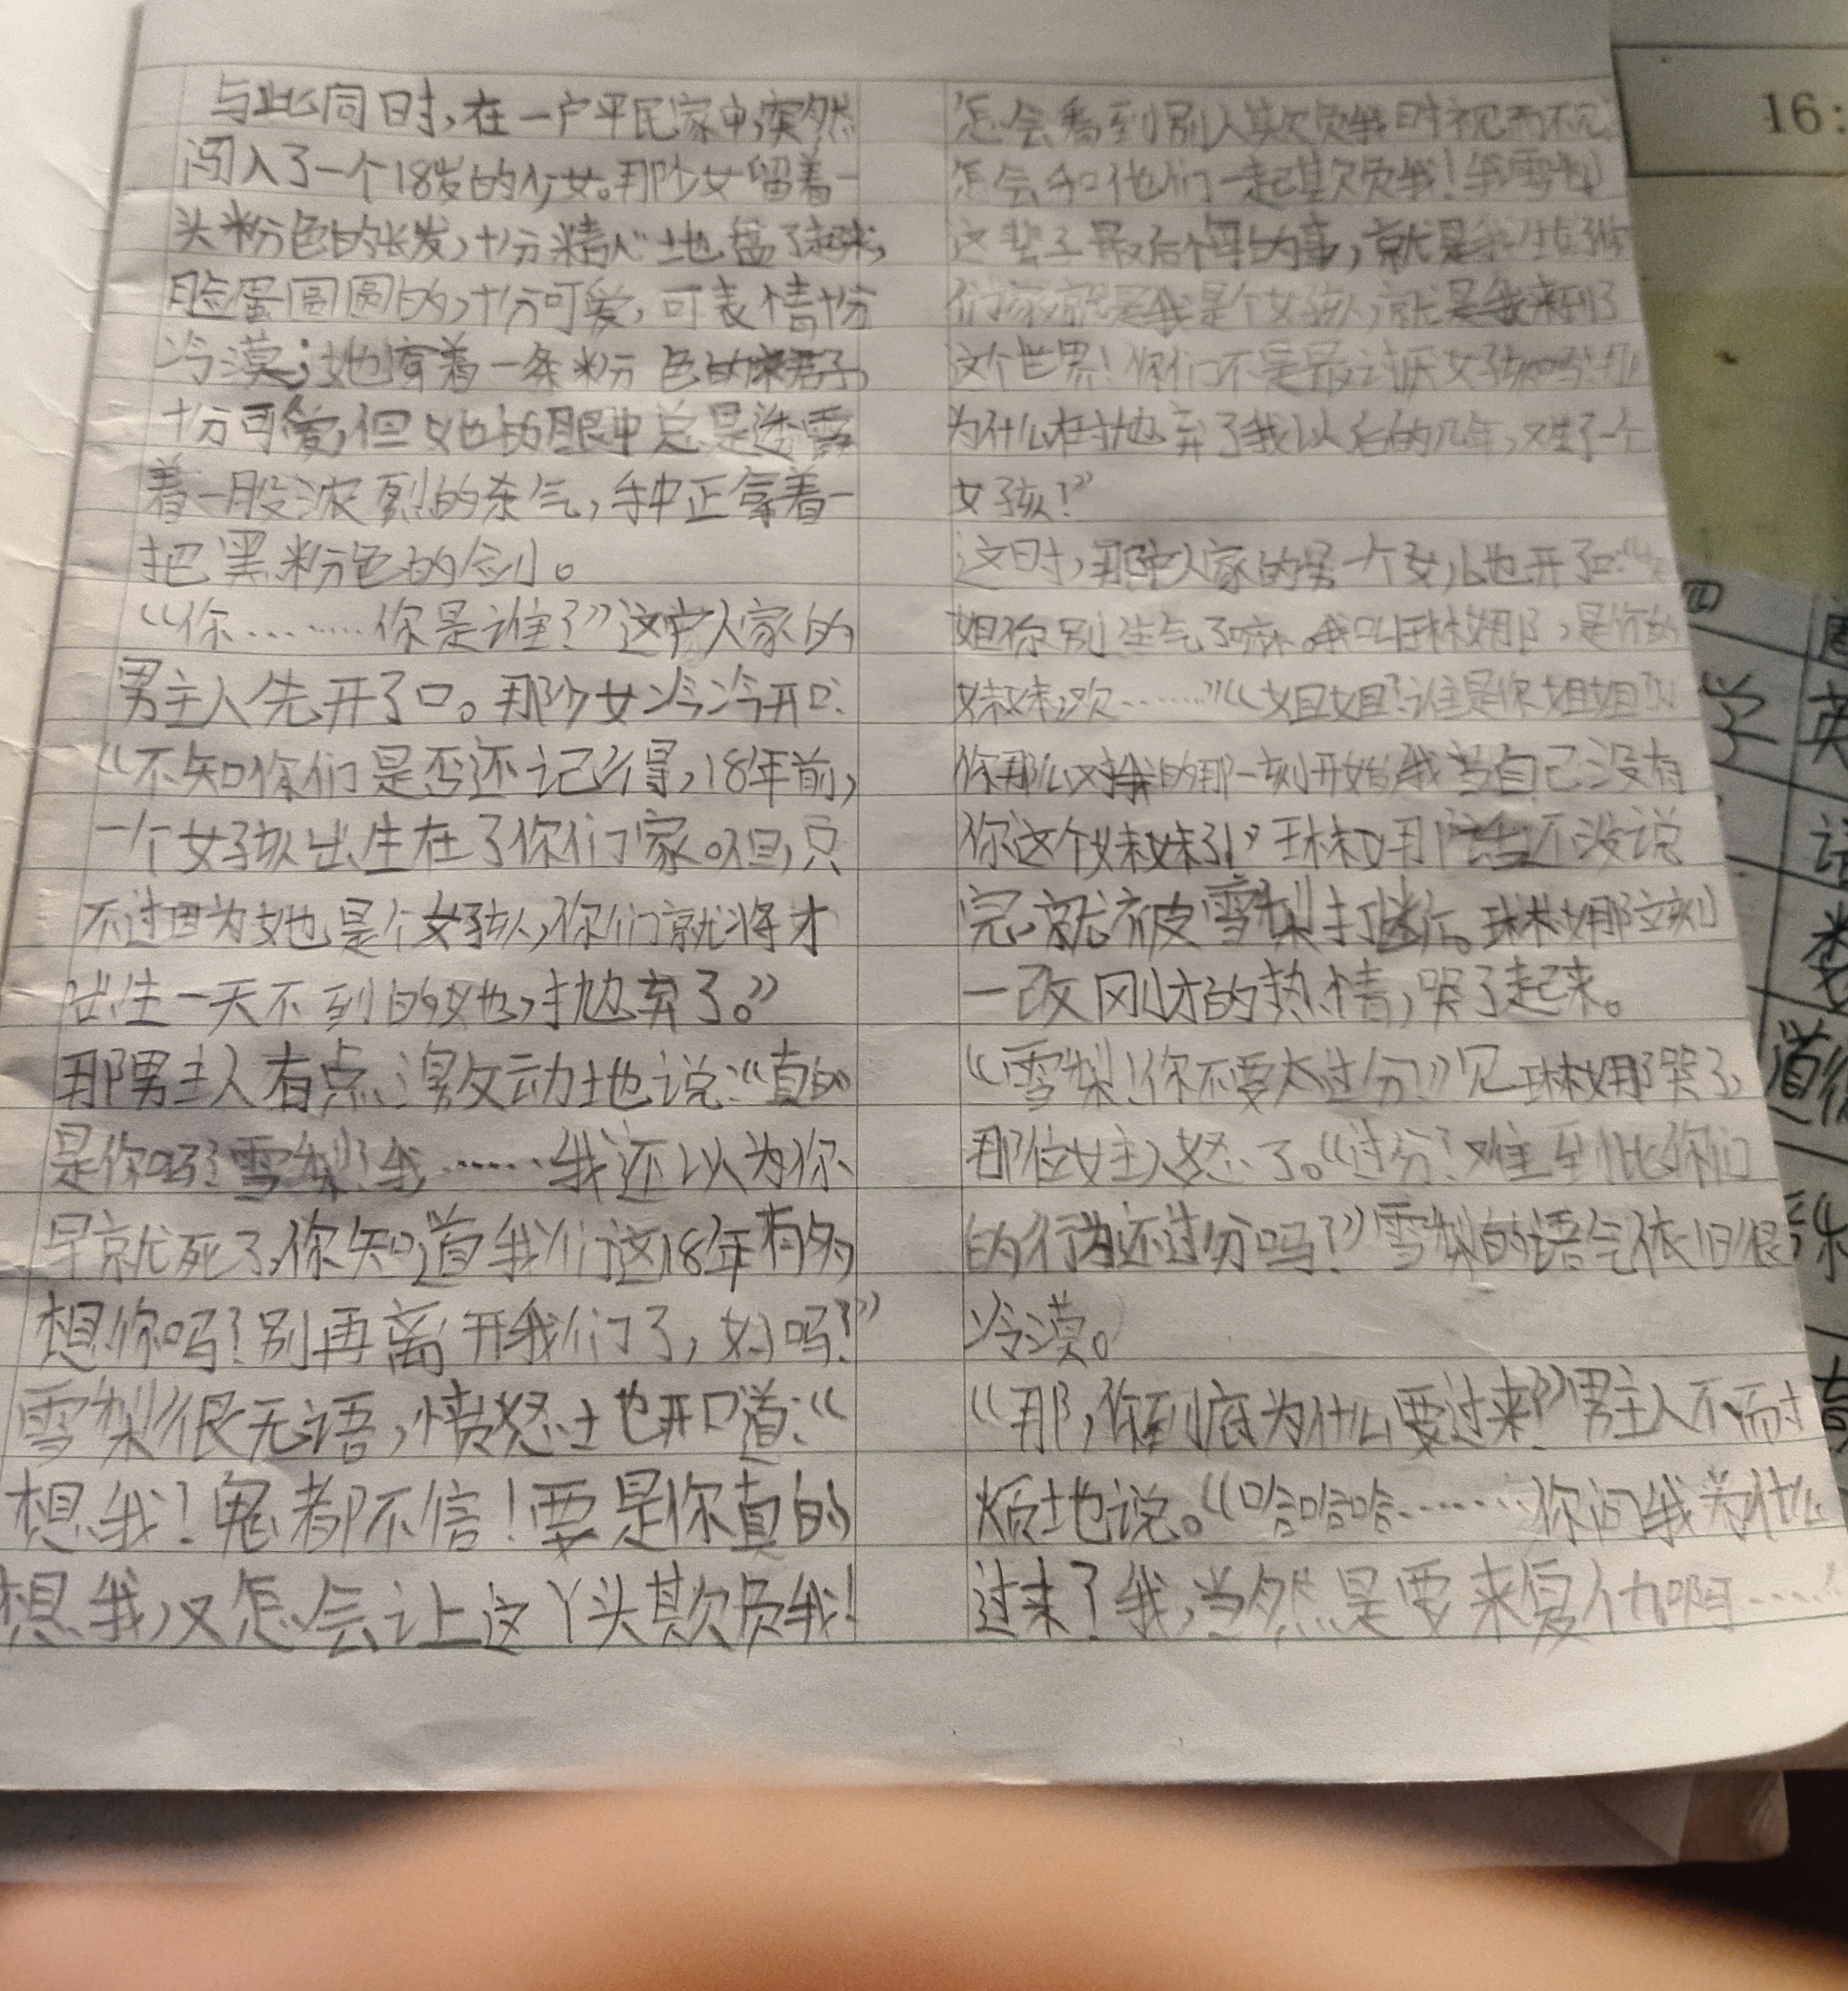 与此同时,在一户平民家中,突然
闯入了一个18岁的少女。那少女留着一
头粉色的长发,十分精心地盘了起来,
脸蛋圆圆的,十分可爱,可表情十分
冷漠;她穿着一条粉色的裙子,
十分可爱,但她的眼中总是透露
着一股浓烈的杀气,手中正拿着一
把黑粉色的剑。
“你………你是谁?”这户人家的
男主人先开了口。那少女冷冷开口:
“不知你们是否还记得,18年前,
一个女孩出生在了你们家。但,只
不过因为她是个女孩,你们就将才
出生一天不到的她,抛弃了。”
那男主人有点激动地说:“真的
是你吗?雪梨?我……我还以为你
早就死了,你知道我们这18年有多
想你吗?别再离开我们了,好吗?”
雪梨很无语,愤怒地开口道:“
想我!鬼都不信!要是你真的
想我,又怎会让这丫头欺负我!
怎会看到别人欺负我时视而不见
怎会和他们一起欺负我!我雪梨
这辈子最后悔的事,就是我生在你
们家,就是我是个女孩,就是我来到了
这个世界!你们不是最讨厌女孩吗?那
为什么在抛弃了我以后的几年,又生了一个
女孩?”
这时,那户人家的另一个女儿也开了口:“
姐你别生气了嘛。我叫琳娜,是你的
妹妹,欢……”“姐姐?谁是你姐姐?从
你那么对我的那一刻开始,我当自己没有
你这个妹妹了!”琳娜话还没说
完,就被雪梨打断了。琳娜立刻
一改刚才的热情,哭了起来。
“雪梨!你不要太过分!”见琳娜哭了,
那位女主人怒了。“过分?难到比你们
的行为还过分吗?”雪梨的语气依旧很
冷漠。
“那,你到底为什么要过来?”男主人不耐
烦地说。“哈哈哈……你问我为什么
过来?我,当然是要来复仇啊……
16:
四
学
英
语
数
道德